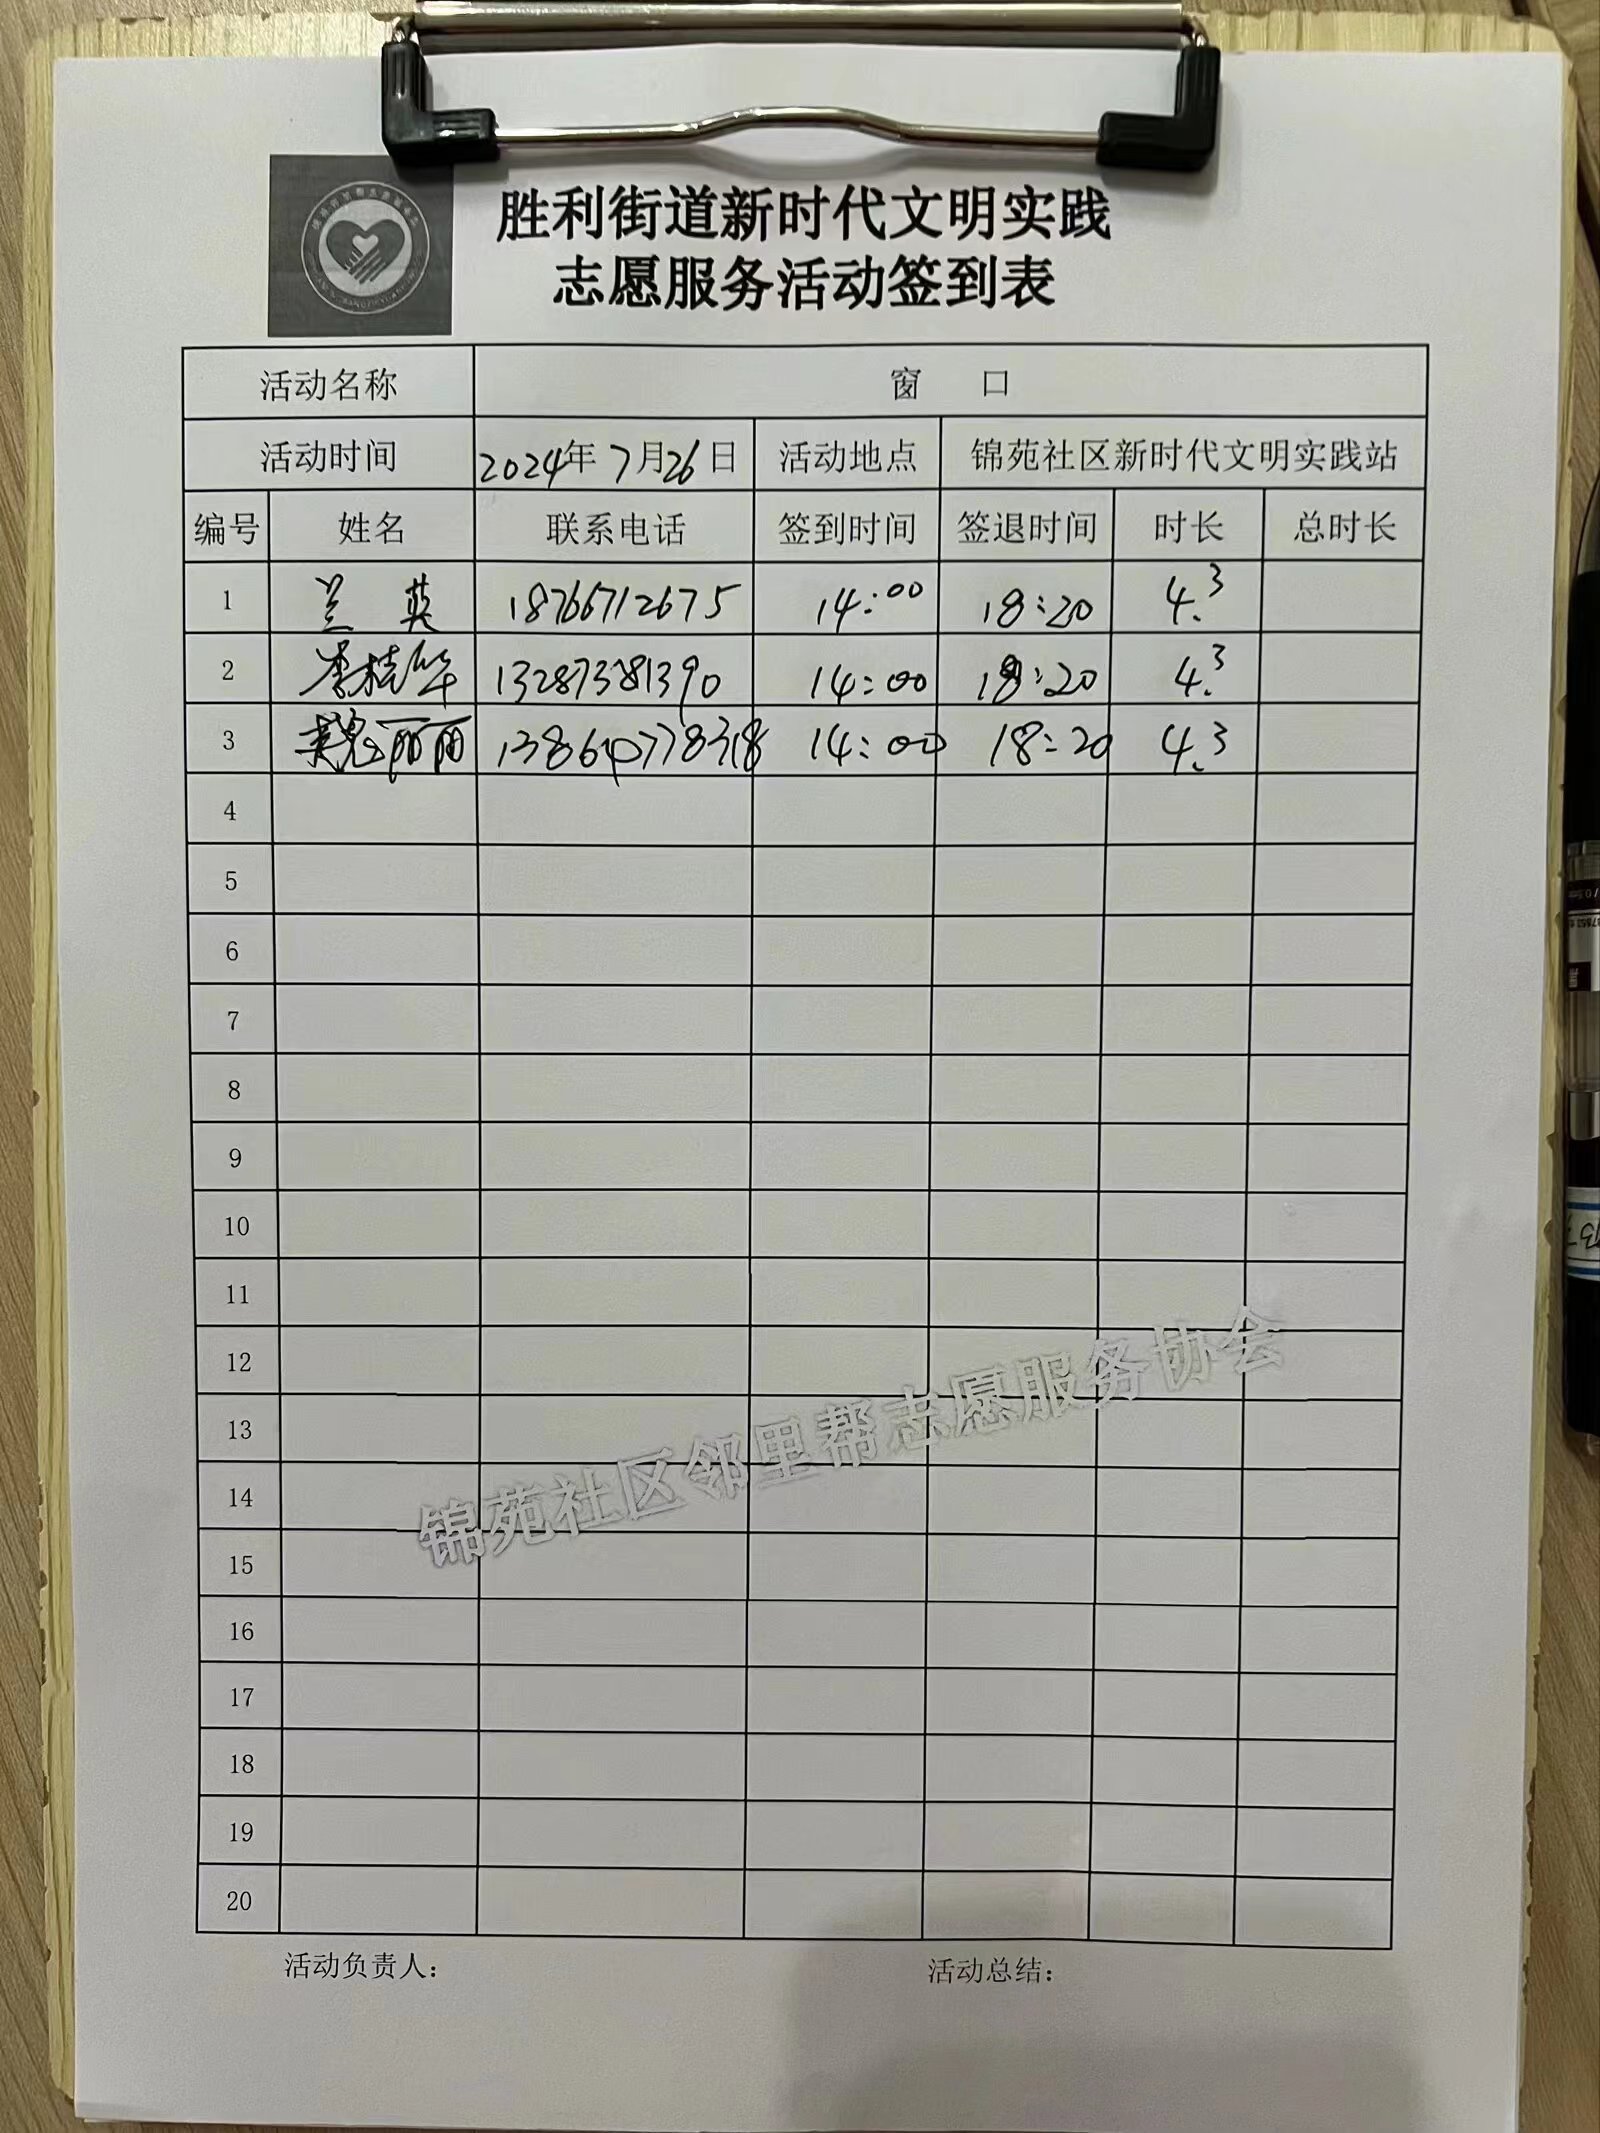 胜利街道新时代文明实践
志愿服务活动签到表
活动名称 窗 口
活动时间 2024年7月26日 活动地点 锦苑社区新时代文明实践站
编号 姓名 联系电话 签到时间 签退时间 时长 总时长
1 兰 英 18766712675 14:00 18:20 4.3
2 李桂华 13287381390 14:00 18:20 4.3
3 丽丽 14:00 18:20 4.3
4
5
6
7
8
9
10
11
12
13
14
15
16
17
18
19
20
锦苑社区邻里帮志愿服务协会
活动负责人： 活动总结：